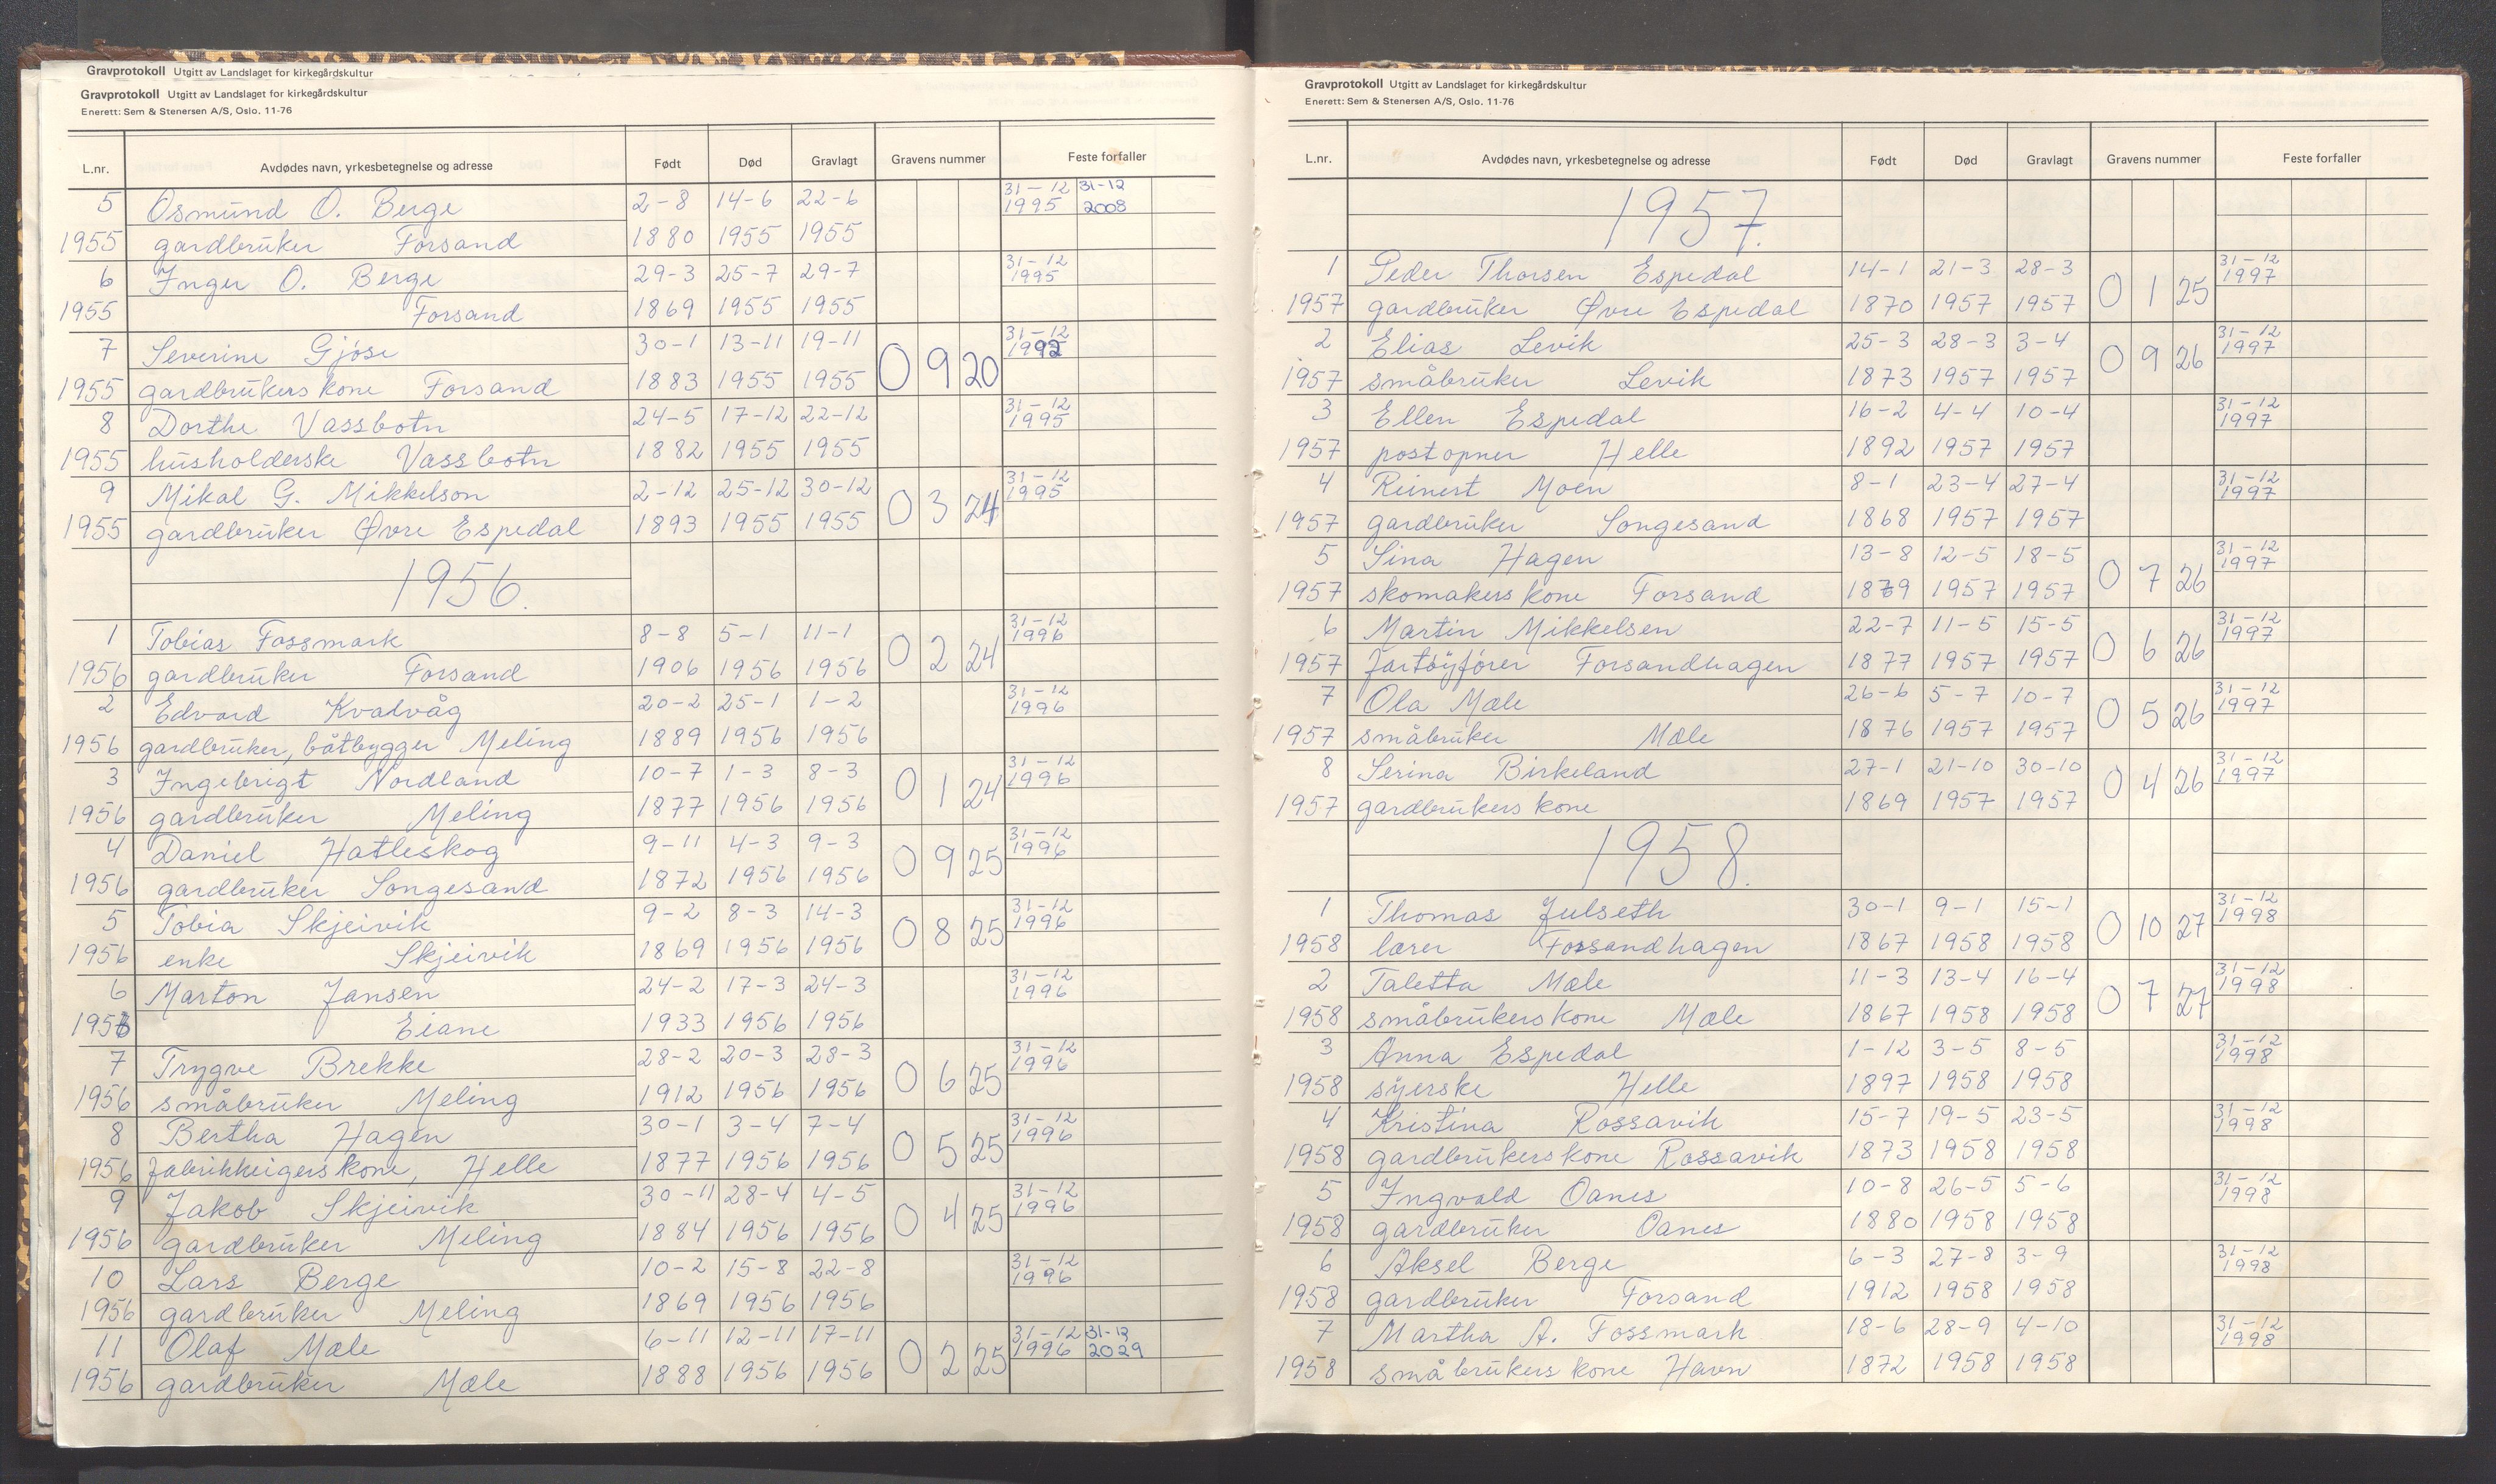 Gravprotokoll Utgitt av Landslaget for kirkegårdskultur
Gravprotokoll Utgitt av Landslaget for kirkegårdskultur
Enerett: Sem & Stenersen A/S, Oslo. 11-76
L.nr. Avdødes navn, yrkesbetegnelse og adresse Født Død Gravlagt Gravens nummer Feste forfaller
5 Osmund O. Berge 2-8 14-6 22-6 31-12 1995 31-12 2008
1955 gardbruker Forsand 1880 1955 1955
6 Inger O. Berge 29-3 25-7 29-7 31-12 1995
1955 Forsand 1869 1955 1955
7 Severine Gjøse 30-1 13-11 19-11 0 9 20 31-12 1992
1955 gardbrukerskone Forsand 1883 1955 1955
8 Dorthe Vassbotn 24-5 17-12 22-12 31-12 1995
1955 husholderske Vassbotn 1882 1955 1955
9 Mikal G. Mikkelson 2-12 25-12 30-12 0 3 24 31-12 1995
1955 gardbruker Øvre Espedal 1893 1955 1955
1956.
1 Tobias Fossmark 8-8 5-1 11-1 0 2 24 31-12 1996
1956 gardbruker Forsand 1906 1956 1956
2 Edvard Kvalvåg 20-2 25-1 1-2 31-12 1996
1956 gardbruker, båtbygger Meling 1889 1956 1956
3 Ingebrigt Nordland 10-7 1-3 8-3 0 1 24 31-12 1996
1956 gardbruker Meling 1877 1956 1956
4 Daniel Hatleskog 9-11 4-3 9-3 0 9 25 31-12 1996
1956 gardbruker Songesand 1872 1956 1956
5 Tobia Skjeivik 9-2 8-3 14-3 0 8 25 31-12 1996
1956 enke Skjeivik 1869 1956 1956
6 Marton Jansen 24-2 17-3 24-3 31-12 1996
1956 Eiane 1933 1956 1956
7 Trygve Brekke 28-2 20-3 28-3 0 6 25 31-12 1996
1956 småbruker Meling 1912 1956 1956
8 Bertha Hagen 30-1 3-4 7-4 0 5 25 31-12 1996
1956 fabrikkeigerskone, Helle 1877 1956 1956
9 Jakob Skjeivik 30-11 28-4 4-5 0 4 25 31-12 1996
1956 gardbruker Meling 1884 1956 1956
10 Lars Berge 10-2 15-8 22-8 31-12 1996
1956 gardbruker Meling 1869 1956 1956
11 Olaf Mæle 6-11 12-11 17-11 0 2 25 31-12 1996 31-12 2029
1956 gardbruker Mæle 1888 1956 1956
Gravprotokoll Utgitt av Landslaget for kirkegårdskultur
Enerett: Sem & Stenersen A/S, Oslo. 11-76
L.nr. Avdødes navn, yrkesbetegnelse og adresse Født Død Gravlagt Gravens nummer Feste forfaller
1957.
1 Peder Thorsen Espedal 14-1 21-3 28-3 0 1 25 31-12 1997
1957 gardbruker Øvre Espedal 1870 1957 1957
2 Elias Levik 25-3 28-3 3-4 0 9 26 31-12 1997
1957 småbruker Levik 1873 1957 1957
3 Ellen Espedal 16-2 4-4 10-4 31-12 1997
1957 postopner Helle 1892 1957 1957
4 Reinert Moen 8-1 23-4 27-4 31-12 1997
1957 gardbruker Songesand 1868 1957 1957
5 Sina Hagen 13-8 12-5 18-5 0 7 26 31-12 1997
1957 skomakerskone Forsand 1879 1957 1957
6 Martin Mikkelsen 22-7 11-5 15-5 0 6 26 31-12 1997
1957 fartøyfører Forsandhagen 1877 1957 1957
7 Ola Mæle 26-6 5-7 10-7 0 5 26 31-12 1997
1957 småbruker Mæle 1876 1957 1957
8 Serina Birkeland 27-1 21-10 30-10 0 4 26 31-12 1997
1957 gardbrukerskone 1869 1957 1957
1958.
1 Thomas Julseth 30-1 9-1 15-1 0 10 27 31-12 1998
1958 lærer Forsandhagen 1867 1958 1958
2 Taletta Mæle 11-3 13-4 16-4 0 7 27 31-12 1998
1958 småbrukerskone Mæle 1867 1958 1958
3 Anna Espedal 1-12 3-5 8-5 31-12 1998
1958 syerske Helle 1897 1958 1958
4 Kristina Rossavik 15-7 19-5 23-5 31-12 1998
1958 gardbrukerskone Rossavik 1873 1958 1958
5 Ingvald Oanes 10-8 26-5 5-6 31-12 1998
1958 gardbruker Oanes 1880 1958 1958
6 Aksel Berge 6-3 27-8 3-9 31-12 1998
1958 gardbruker Forsand 1912 1958 1958
7 Martha A. Fossmark 18-6 28-9 4-10 31-12 1998
1958 småbrukerskone Havn 1872 1958 1958